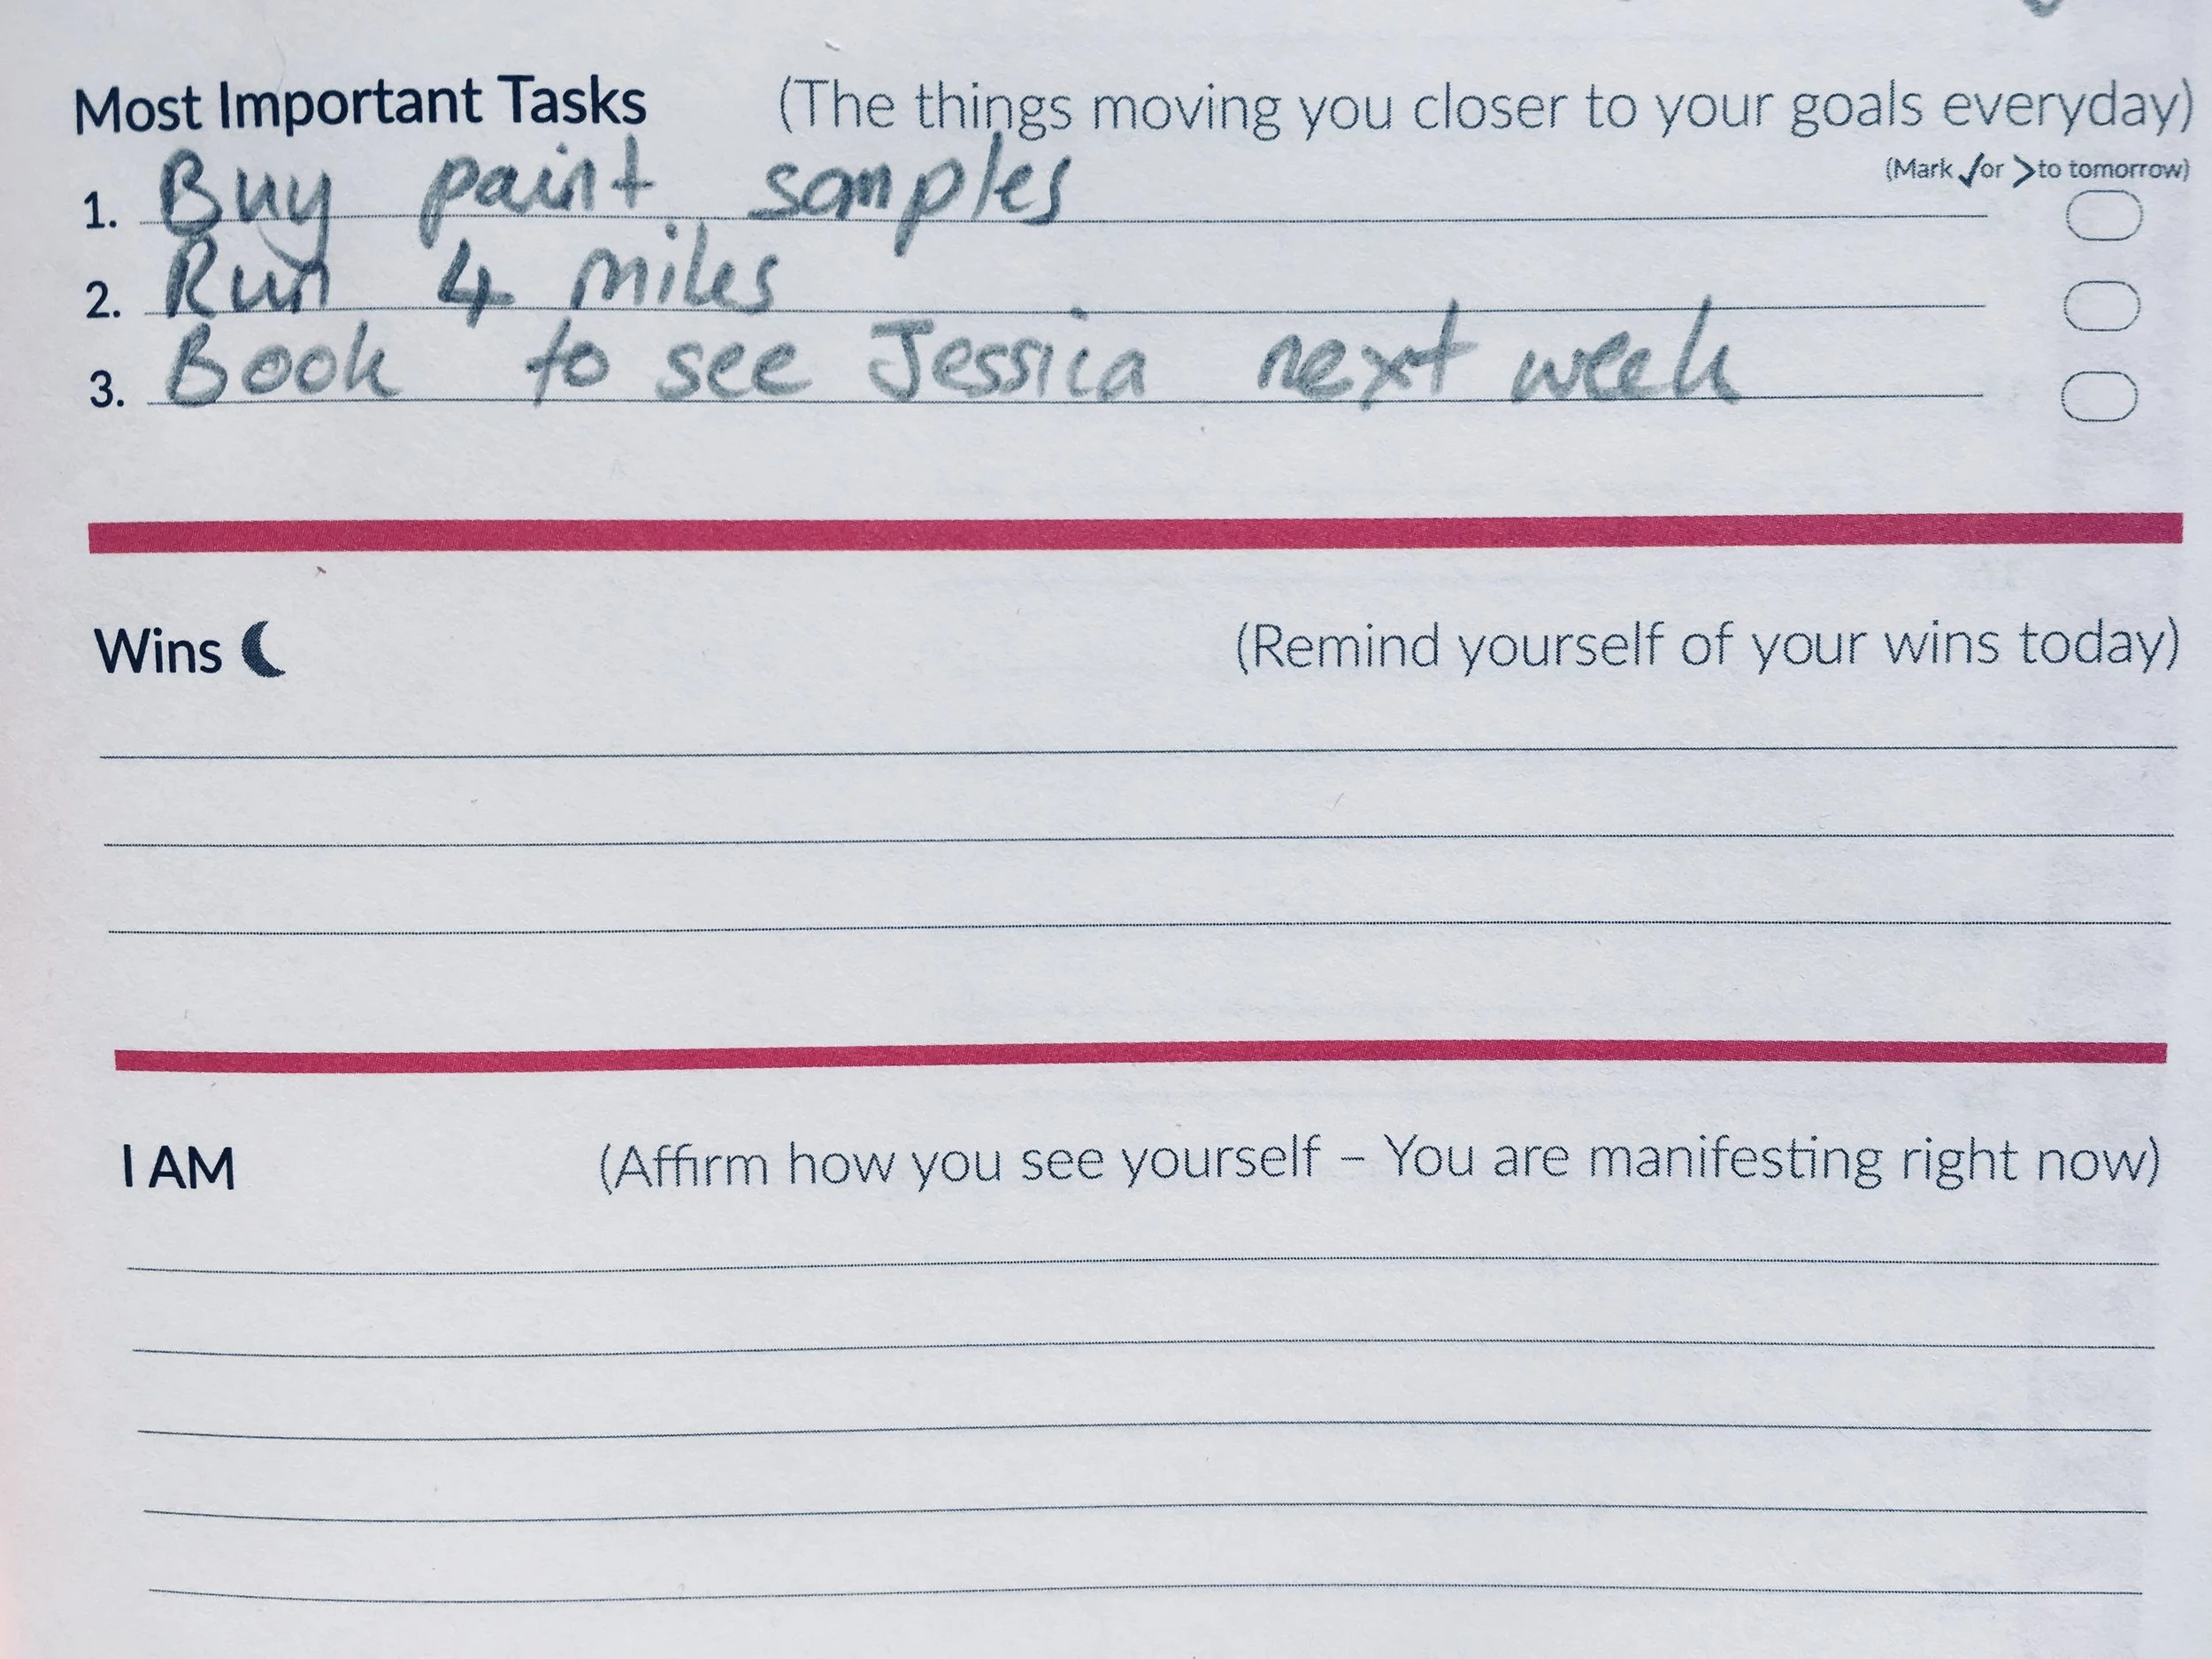 Most Important Tasks (The things moving you closer to your goals everyday)
(Mark ✓or >to tomorrow)
1. Buy paint samples
2. Run 4 miles
3. Book to see Jessica next week
Wins (Remind yourself of your wins today)
I AM (Affirm how you see yourself – You are manifesting right now)